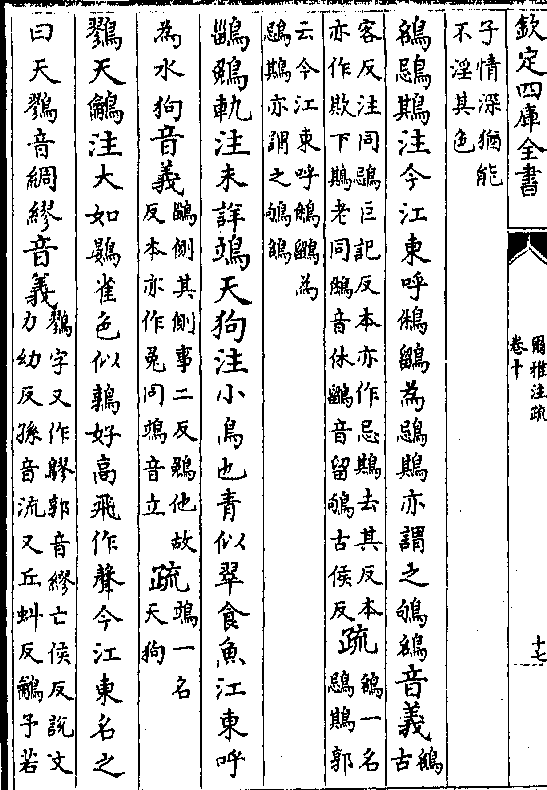 欽定四庫全書
爾雅注疏
卷十
十七
子情深猶能
不淫其色
鵅鵋䳢注今江東呼鵂鶹為鵋䳢亦謂之鴝鵅音義鵅古
客反注同鵋巨記反本亦作忌䳢去其反本
亦作欺下䳢老同鵂音休鶹音留鴝古侯反疏鵅一名鵋䳢郭
云今江東呼鵂鶹為
鵋䳢亦謂之鴝鵅
鶅鵵軌注未詳鴗天狗注小鳥也青似翠食魚江東呼
為水狗音義鶅側其側事二反鵵他故
反本亦作兔同鴗音立疏鴗一名
天狗
鷚天鸙注大如鷃雀色似鶉好高飛作聲今江東名之
曰天鷚音綢繆音義鷚字又作䳟郭音繆亡侯反說文
力幼反孫音流又丘虯反鸙予若